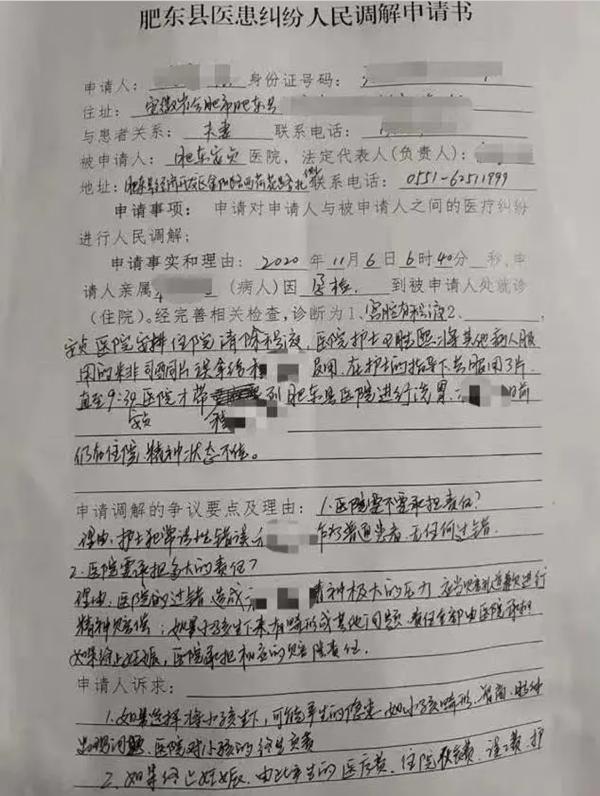 肥东县医患纠纷人民调解申请书
申请人： 身份证号码：
住址： 安徽省合肥市肥东县
与患者关系： 夫妻 联系电话：
被申请人： 肥东安贞 医院，法定代表人(负责人)：
地址： 肥东县经济开发区 联系电话： 0551-62511999
申请事项： 申请对申请人与被申请人之间的医疗纠纷
进行人民调解；
申请事实和理由： 2020 年 11 月 6 日 6 时 40 分 秒，申
请人亲属 (病人)因 孕检. 到被申请人处就诊
(住院)。经完善相关检查，诊断为 1、宫腔有积液2、
安贞医院安排住院清除积液，医院护士 将其他病人服
用的米非司酮片误拿给 服用.在护士的指导下共服用了3片
直至9:30医院才带 到肥东县医院进行洗胃. 目前
安贞
仍在住院,精神状态不佳。
申请调解的争议要点及理由： 1.医院需不需承担责任?
理由.护士犯常识性错误 作为普通患者,无任何过错.
2.医院需承担多大的责任?
理由.医院的过错造成 精神极大的压力 应当 进行
精神赔偿；如果小孩生下来有畸形或其他问题.责任全部由医院承担
如果终止妊娠,医院承担相应的赔偿责任.
申请人诉求：
1.如果选择将小孩 下,可能产生的隐患.如小孩畸形、智商、
出现问题.医院对小孩的终生负责
2.如果终止妊娠.由此产生的医疗费、住院 费、误工费、护